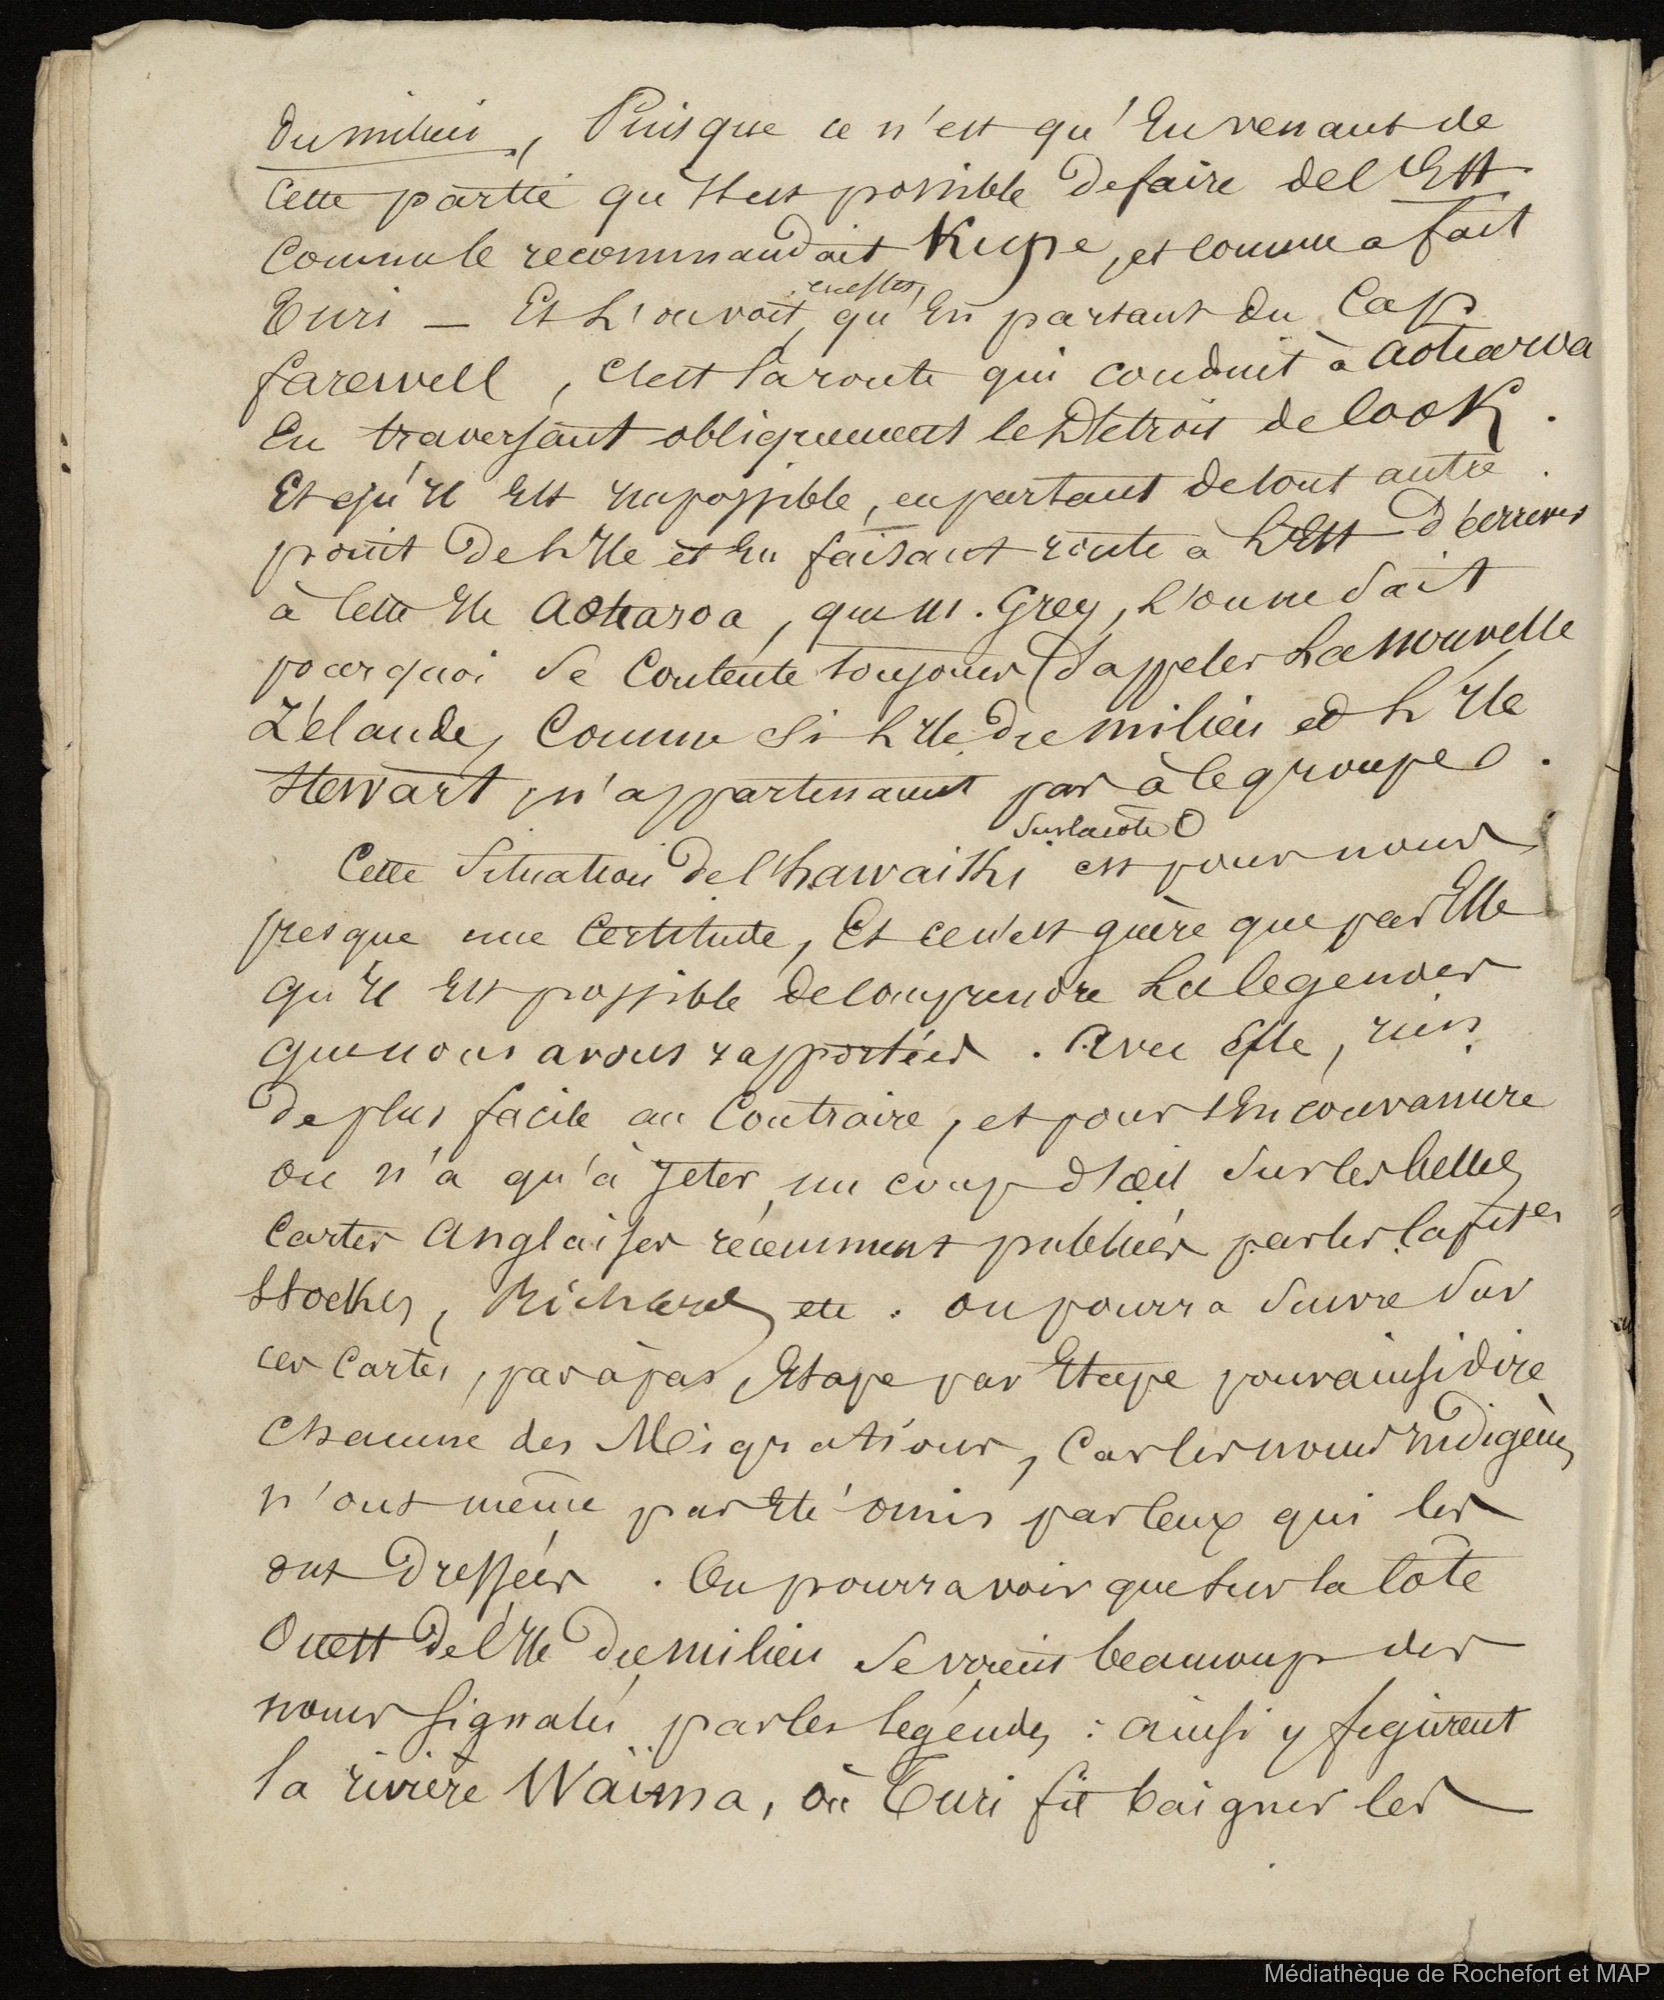 du milieu, Puisque ce n'est qu'en venant de
cette partie qu'il est possible de faire de l'Est
comme le recommandait Kupe, et comme a fait
Turi — Et l'on voit, en effet, qu'en partant du Cap
farewell, c'est la route qui conduit à Aotearoa
En traversant obliquement le Détroit de Cook.
Et qu'il est impossible, en partant de tout autre
point de l'Ile et en faisant route à l'Est d'arriver
à cette Ile Aotearoa, que M. Grey, l'on ne sait
pourquoi se contente toujours d'appeler La Nouvelle
Zélande, Comme si l'Ile du milieu et l'Ile
Stewart, n'appartenaient pas à ce groupe.
Cette Situation de l'hawaïki sur la côte O est pour nous
presque une certitude, Et ce n'est guère que par Elle
qu'il est possible de comprendre les légendes
que nous avons rapportées. Avec Elle, rien
de plus facile au Contraire, et pour s'en convaincre
on n'a qu'à Jeter un coup d'œil sur les belles
Cartes Anglaises récemment publiées par les Capit^es
Stockes, Richards etc. on pourra suivre sur
ces Cartes, pas à pas, Etape par Etape pour ainsi dire
chacune des Migrations, Car les noms indigènes
n'ont même pas été omis par ceux qui les
ont Dressées. On pourra voir que sur la Côte
Ouest de l'Ile du milieu se voient beaucoup des
noms signalés par les légendes : ainsi y figurent
la rivière Waïma, où Turi fit baigner les
Médiathèque de Rochefort et MAP